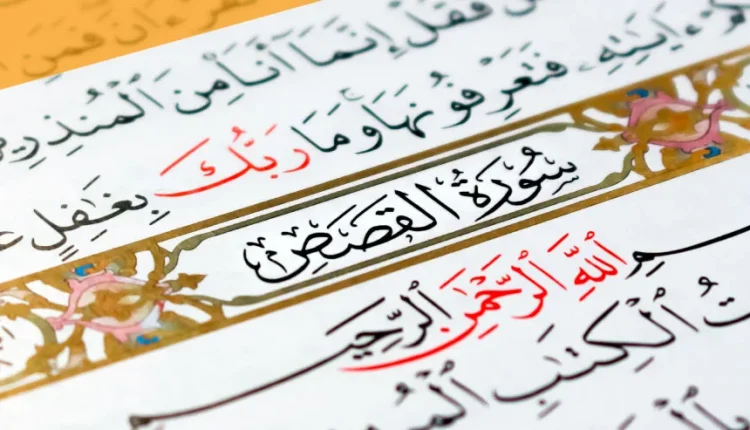 فَمَنِ
فَقُلْ إِنَّمَآ أَنَا۠ مِنَ ٱلْمُنذِرِيـ
ءَايَٰتِهِۦ فَتَعْرِفُونَهَا وَمَا رَبُّكَ بِغَٰفِلٍ عَـ
سُورَةُ القَصَصِ
ـسْمِ ٱللَّهِ ٱلرَّحْمَٰنِ ٱلرَّحِيمِ
ـتُ ٱلْكِتَٰبِ ٱلْمُـ